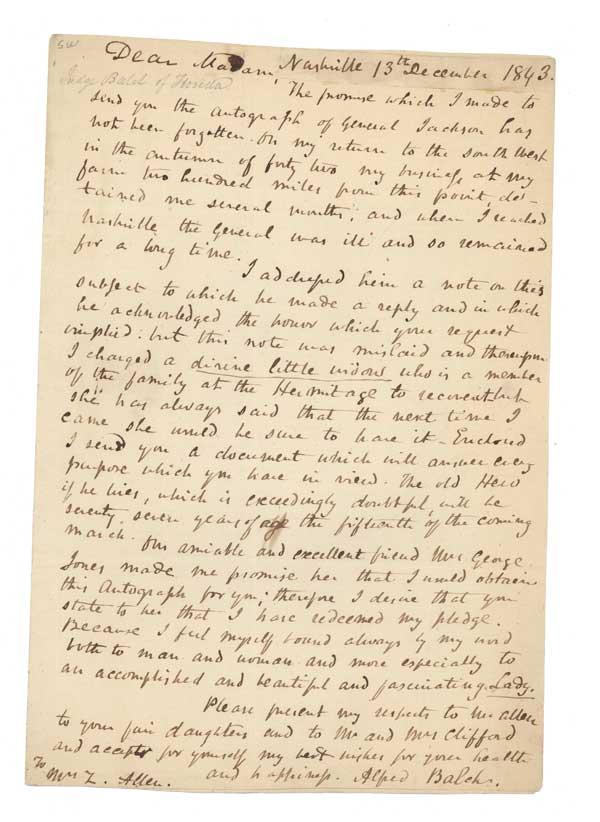 SW
Dear Madam, Nashville 13th December 1843.
Judge Balch of Florida
The promise which I made to
send you the autograph of General Jackson has
not been forgotten. On my return to the south West
in the autumn of forty two my business at my
farm two hundred miles from this point, de-
tained me several months; and when I reached
Nashville the General was ill and so remained
for a long time.
I addressed him a note on this
subject to which he made a reply and in which
he acknowledged the honor which your request
implied: but this note was mislaid and thereupon
I charged a divine little widow who is a member
of the family at the Hermitage to recover it but
she has always said that the next time I
came she would be sure to have it - Enclosed
I send you a document which will answer every
purpose which you have in view. The old Hero
if he lives, which is exceedingly doubtful, will be
seventy-seven years of age the fifteenth of the coming
March. Our amiable and excellent friend Mrs George
Jones made me promise her that I would obtain
this Autograph for you; therefore I desire that you
state to her that I have redeemed my pledge.
Because I feel myself bound always by my word
both to man and woman and more especially to
an accomplished and beautiful and fascinating Lady.
Please present my respects to Mr Allen
to your fair daughters and to Mr and Mrs Clifford
and accept for yourself my best wishes for your health
and happiness. Alfred Balch.
To Mrs Z. Allen.